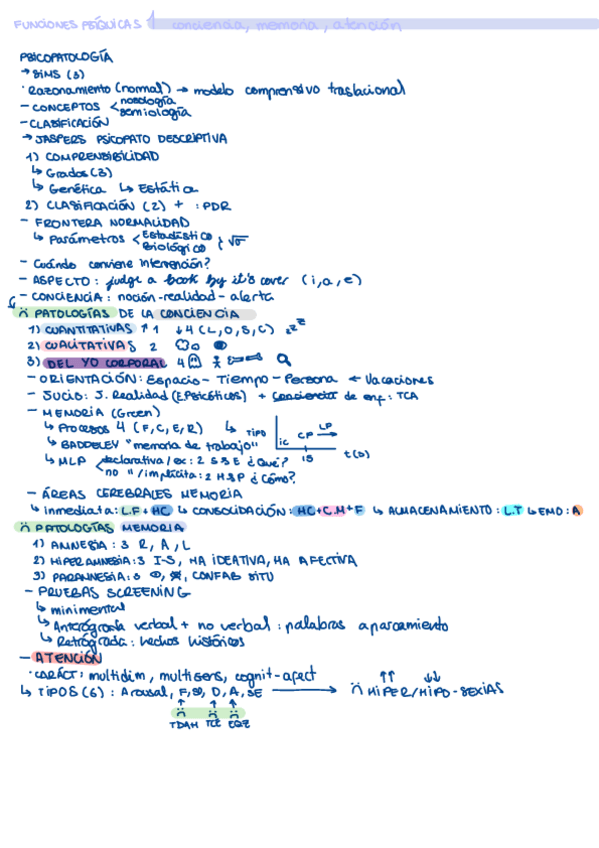 FUNCIONES PSÍQUICAS 1 conciencia, memoria, atención
PSICOPATOLOGÍA
→ BIMS (3)
· Razonamiento (normal) → modelo comprensivo traslacional
- CONCEPTOS < nosología
semiología
- CLASIFICACIÓN
→ JASPERS PSICOPATO DESCRIPTIVA
1) COMPRENSIBILIDAD
↳ Grados (3)
↳ Genética ↳ Estática
2) CLASIFICACIÓN (2) + : PDR
- FRONTERA NORMALIDAD
↳ Parámetros < Estadístico
Biológico
- Cuándo conviene intervención?
- ASPECTO : judge a book by it's cover (i, a, e)
- CONCIENCIA : noción - realidad - alerta
PATOLOGÍAS DE LA CONCIENCIA
1) CUANTITATIVAS ↑ 1 ↓ 4 (L, O, S, C) zzz
2) CUALITATIVAS 2
3) DEL YO CORPORAL 4
- ORIENTACIÓN : Espacio - Tiempo - Persona ← Vacaciones
- JUCIO : J. Realidad (E. Psicóticos) + Conciencia de enf : TCA
- MEMORIA (Green)
↳ Procesos 4 (F, C, E, R) ↳ TIPO ic CP → LP →
↳ BADDELEY "memoria de trabajo" 15 t(s)
↳ MLP < declarativa / ex : 2 S y E ¿Qué?
no " / implícita : 2 H y P ¿Cómo?
- ÁREAS CEREBRALES MEMORIA
↳ inmediata : L.F + HC ↳ CONSOLIDACIÓN : HC + C.M + F ↳ ALMACENAMIENTO : L.T ↳ EMO : A
PATOLOGÍAS MEMORIA
1) AMNESIA : 3 R, A, L
2) HIPERAMNESIA : 3 I-S, HA IDEATIVA, HA AFECTIVA
3) PARAMNESIA : 3 , , CONFAB SITU
- PRUEBAS SCREENING
↳ minimental
↳ Anterógrada verbal + no verbal : palabras apareamiento
↳ Retrógrada : hechos históricos
- ATENCIÓN
· CARÁCT : multidim, multisens, cognit - afect
↳ TIPOS (6) : Arousal, F, SO, D, A, SE → HIPER/HIPO - SEXIAS
TDAH TCE EQZ